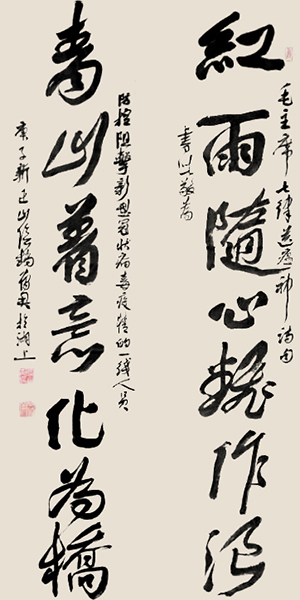 毛主席七律送瘟神詩句
紅雨隨心翻作浪
書以敬為
防控阻擊新型冠狀病毒疫情的一綫人員
青山著意化為橋
庚子新正山陰於湖上